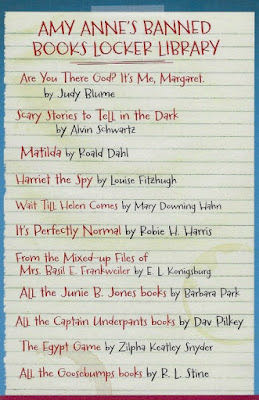 AMY ANNE'S BANNED
BOOKS LOCKER LIBRARY
Are You There God? It's Me, Margaret.
by Judy Blume
Scary Stories to Tell in the Dark
by Alvin Schwartz
Matilda by Roald Dahl
Harriet the Spy by Louise Fitzhugh
Wait Till Helen Comes by Mary Downing Hahn
It's Perfectly Normal by Robie H. Harris
From the Mixed-up Files of
Mrs. Basil E. Frankweiler by E. L. Konigsburg
All the Junie B. Jones books by Barbara Park
All the Captain Underpants books by Dav Pilkey
The Egypt Game by Zilpha Keatley Snyder
All the Goosebumps books by R. L. Stine